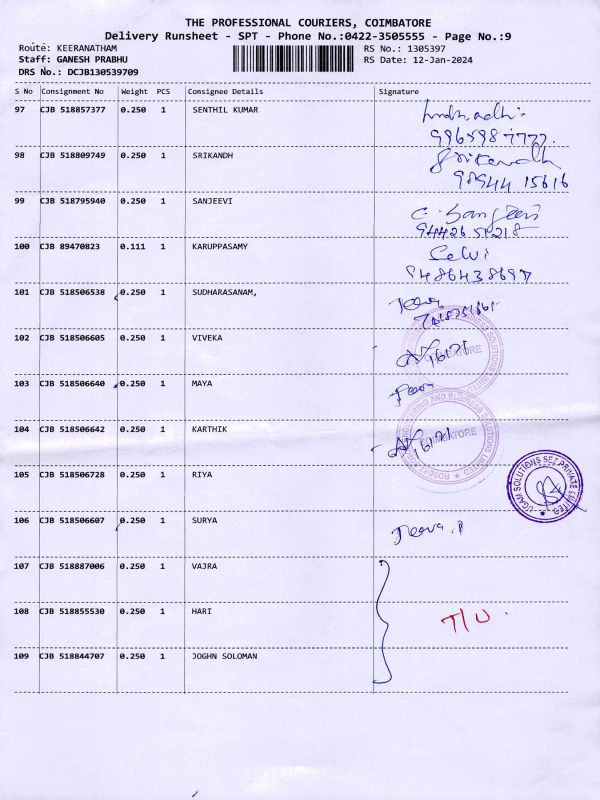 THE PROFESSIONAL COURIERS, COIMBATORE
Delivery Runsheet - SPT - Phone No.:0422-3505555 - Page No.:9
Route: KEERANATHAM RS No.: 1305397
Staff: GANESH PRABHU RS Date: 12-Jan-2024
DRS No.: DCJB130539709
S No Consignment No Weight PCS Consignee Details Signature
97 CJB 518857377 0.250 1 SENTHIL KUMAR
98 CJB 518809749 0.250 1 SRIKANDH Srikandh
98944 15616
99 CJB 518795940 0.250 1 SANJEEVI
100 CJB 89470823 0.111 1 KARUPPASAMY Selvi
101 CJB 518506538 0.250 1 SUDHARASANAM,
102 CJB 518506605 0.250 1 VIVEKA
103 CJB 518506640 0.250 1 MAYA
104 CJB 518506642 0.250 1 KARTHIK
105 CJB 518506728 0.250 1 RIYA
UGAM SOLUTIONS SEZ PRIVATE LIMITED
106 CJB 518506607 0.250 1 SURYA
107 CJB 518887006 0.250 1 VAJRA
108 CJB 518855530 0.250 1 HARI T/U.
109 CJB 518844707 0.250 1 JOGHN SOLOMAN